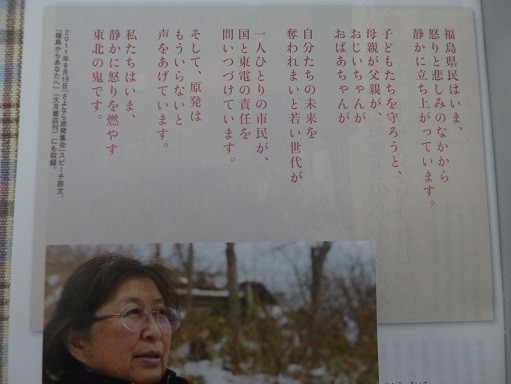 福島県民はいま、
怒りと悲しみのなかから
静かに立ち上がっています。
子どもたちを守ろうと、
母親が父親が、
おじいちゃんが
おばあちゃんが
自分たちの未来を
奪われまいと若い世代が
一人ひとりの市民が、
国と東電の責任を
問いつづけています。
そして、原発は
もういらないと
声をあげています。
私たちはいま、
静かに怒りを燃やす
東北の鬼です。
2011年9月19日「さよなら原発集会」スピーチ原文。
『福島からあなたへ』(大月書店刊)にも収録。